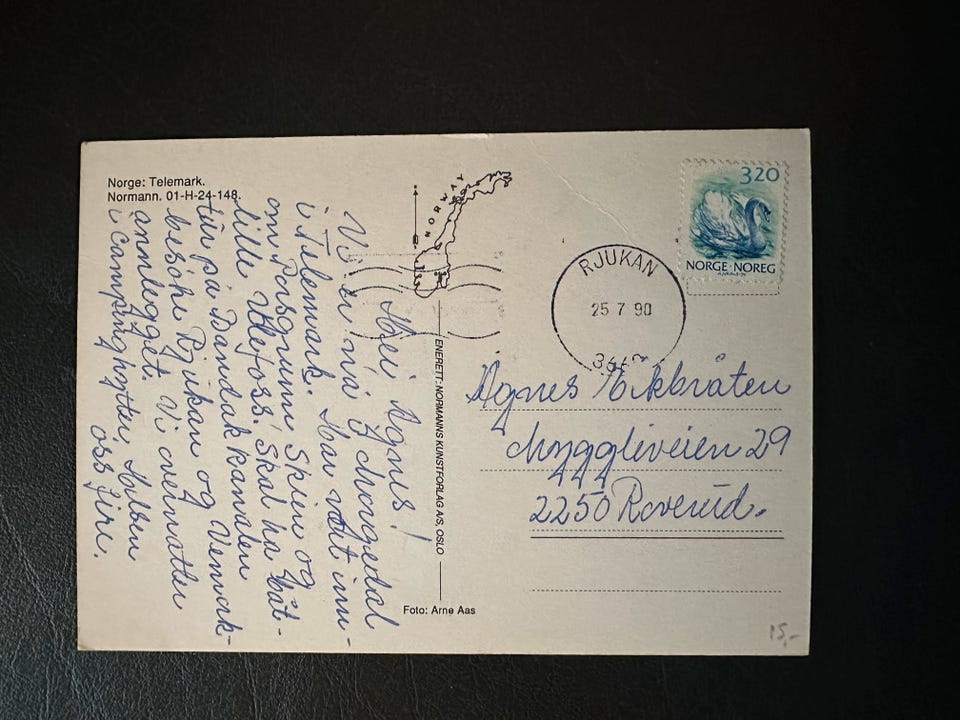 Norge: Telemark.
Normann. 01-H-24-148.
Hei Agnes!
Vi er nå i Morgedal
i Telemark. Har vært inn-
om Porsgrunn Skien og
lille Ulefoss. Skal ha båt-
tur på Bandak kanalen
besøke Rjukan og Vemork-
annlegget. Vi overnatter
i campinghytter. Hilsen
oss fire.
NORWAY
ENERETT: NORMANNS KUNSTFORLAG A/S, OSLO
Foto: Arne Aas
3.20
NORGE·NOREG
RJUKAN
25 7 90
Agnes Eikbråten
Myggliveien 29
2250 Roverud.
15,-